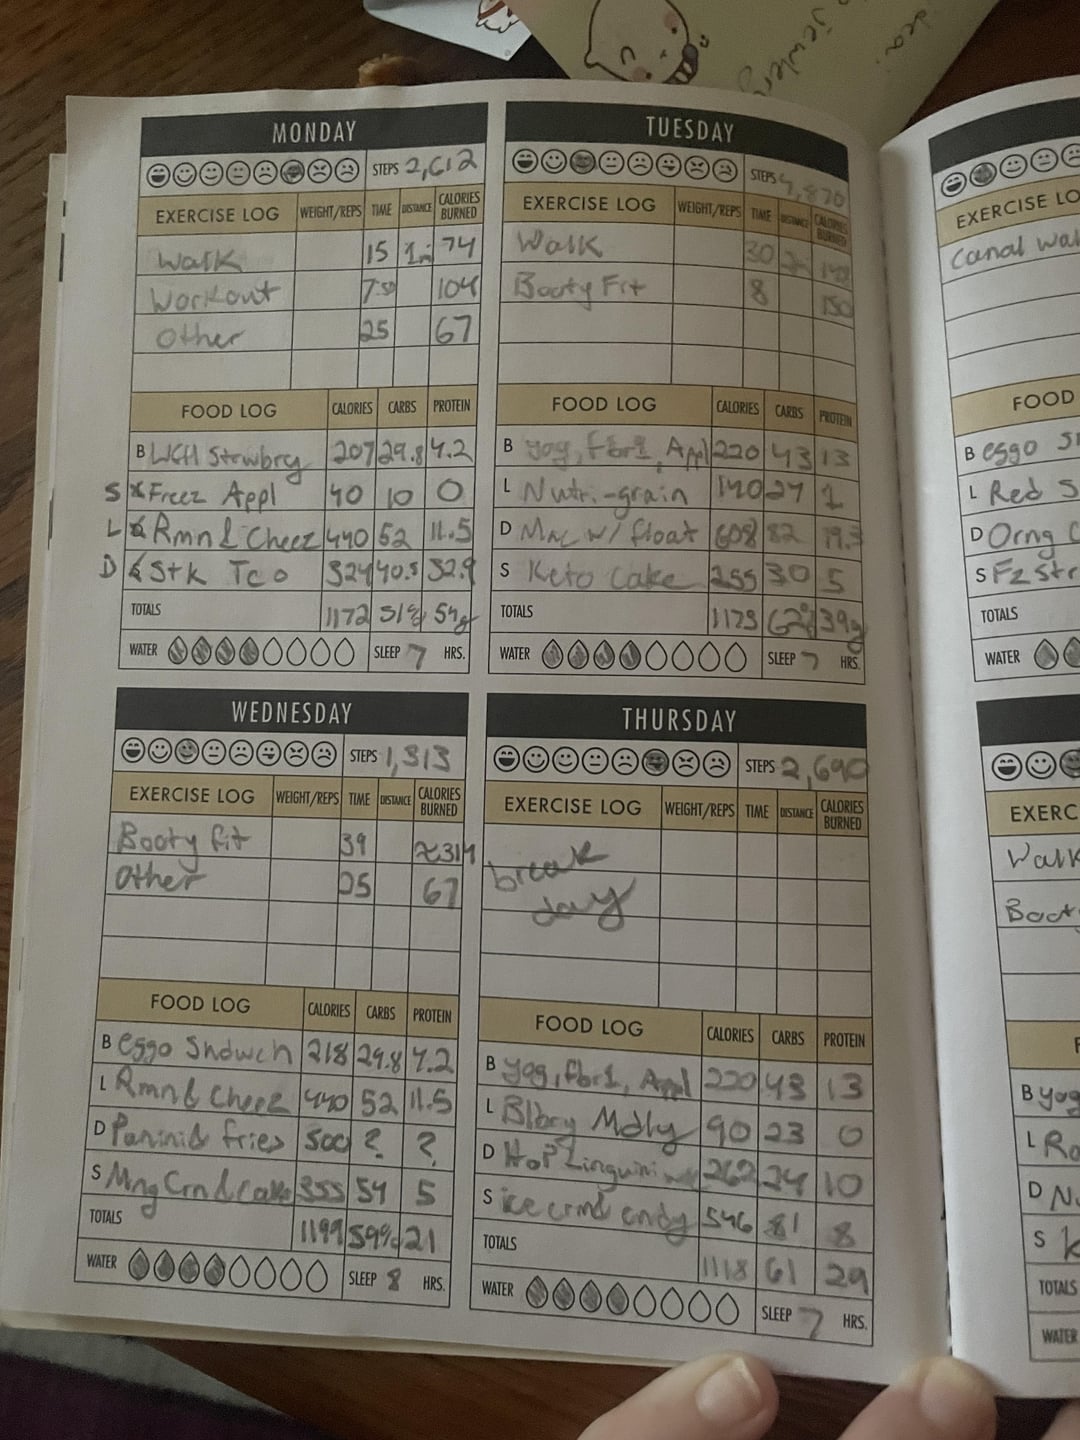 idea!
jewlery
MONDAY
STEPS 2,612
EXERCISE LOG WEIGHT/REPS TIME DISTANCE CALORIES BURNED
Walk 15 74
Workout 104
Other 25 67
FOOD LOG CALORIES CARBS PROTEIN
B Strwbry 207 29.8 4.2
S Freez Appl 40 10 0
L Rmn & Cheez 440 52 11.5
D Stk Tco 324 40.5 32.9
TOTALS 1172 51%
WATER SLEEP 7 HRS.
TUESDAY
STEPS 4,870
EXERCISE LOG WEIGHT/REPS TIME DISTANCE CALORIES BURNED
Walk 30
Booty Fit 8 150
FOOD LOG CALORIES CARBS PROTEIN
B Yog, Fbr1, Appl 220 43 13
L Nutri-grain 1
D Mac w/ float 608 82 19.3
S Keto Cake 255 30 5
TOTALS 62% 39g
WATER SLEEP 7 HRS.
WEDNESDAY
STEPS 1,313
EXERCISE LOG WEIGHT/REPS TIME DISTANCE CALORIES BURNED
Booty fit 39 ≈314
Other 25 67
FOOD LOG CALORIES CARBS PROTEIN
B Eggo Sndwch 218 29.8 7.2
L Rmn & Cheez 440 52 11.5
D Panini & fries 500 ? ?
S Mng Crn & Cake 355 54 5
TOTALS 1199 59% 21
WATER SLEEP 8 HRS.
THURSDAY
STEPS 2,690
EXERCISE LOG WEIGHT/REPS TIME DISTANCE CALORIES BURNED
break
day
FOOD LOG CALORIES CARBS PROTEIN
B Yog, Fbr1, Appl 220 43 13
L Blbry Mdly 90 23 0
D HoP Linguini 262 34 10
S ice crm & cndy 546 81 8
TOTALS 1118 61 29
WATER SLEEP 7 HRS.
EXERCISE LO
Canal Wal
FOOD
B eggo S
L Red S
D Orng C
S Fz Str
TOTALS
WATER
EXERC
Walk
Boot
F
B yog
L Ra
D N
S K
TOTALS
WATER